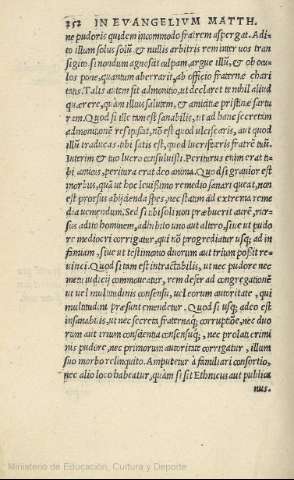 252 IN EVANGELIVM MATTH.
ne pudoris quidem incommodo fratrem aspergat. Adi-
to illum solus solũ, & nullis arbitris rem inter vos tran
sigito. si nondum agnoscit culpam, argue illũ, & ob ocu-
los pone, quantum aberrarit, ab officio fraternæ chari
tatis. Talis autem sit admonitio, ut declaret te nihil aliud
quærere, quàm illius salutem, & amicitiæ pristinæ sartu
ram. Quod si ille tam est sanabilis, ut ad hanc secretam
admonitionẽ resipiscat, nõ est quod ulciscaris, aut quod
illũ traducas. tibi satis est, quod lucrifeceris fratrẽ tuũ.
Interim & tuo lucro consuluisti. Periturus enim erat ti-
bi amicus, peritura erat deo anima. Quod si gravior est
morbus, quã ut hoc levissimo remedio sanari queat, non
est prorsus abijcienda spes, nec statim ad extrema reme
dia veniendum. Sed si tibi soli non præbuerit aurẽ, rur-
sus adito hominem, adhibito uno aut altero, sive ut pudo
re mediocri corrigatur, qui nõ progrediatur usq; ad in
famiam, sive ut testimonio duorum aut trium possit re-
vinci. Quod si tam est intractabilis, ut nec pudore nec
metu iudicij commoveatur, rem defer ad congregationẽ
ut vel multitudinis consensu, vel eorum autoritate, qui
multitudini præsunt emendetur. Quod si usq; adeo est
insanabilis, ut nec secreta fraternaq; correptiõe, nec duo
rum aut trium conscientia consensuq;, nec prolati crimi
nis pudore, nec primorum autoritate corrigatur, illum
suo morbo relinquito. Amputetur à familiari consortio,
nec alio loco habeatur, quàm si sit Ethnicus aut publica
nus.
Ministerio de Educación, Cultura y Deporte